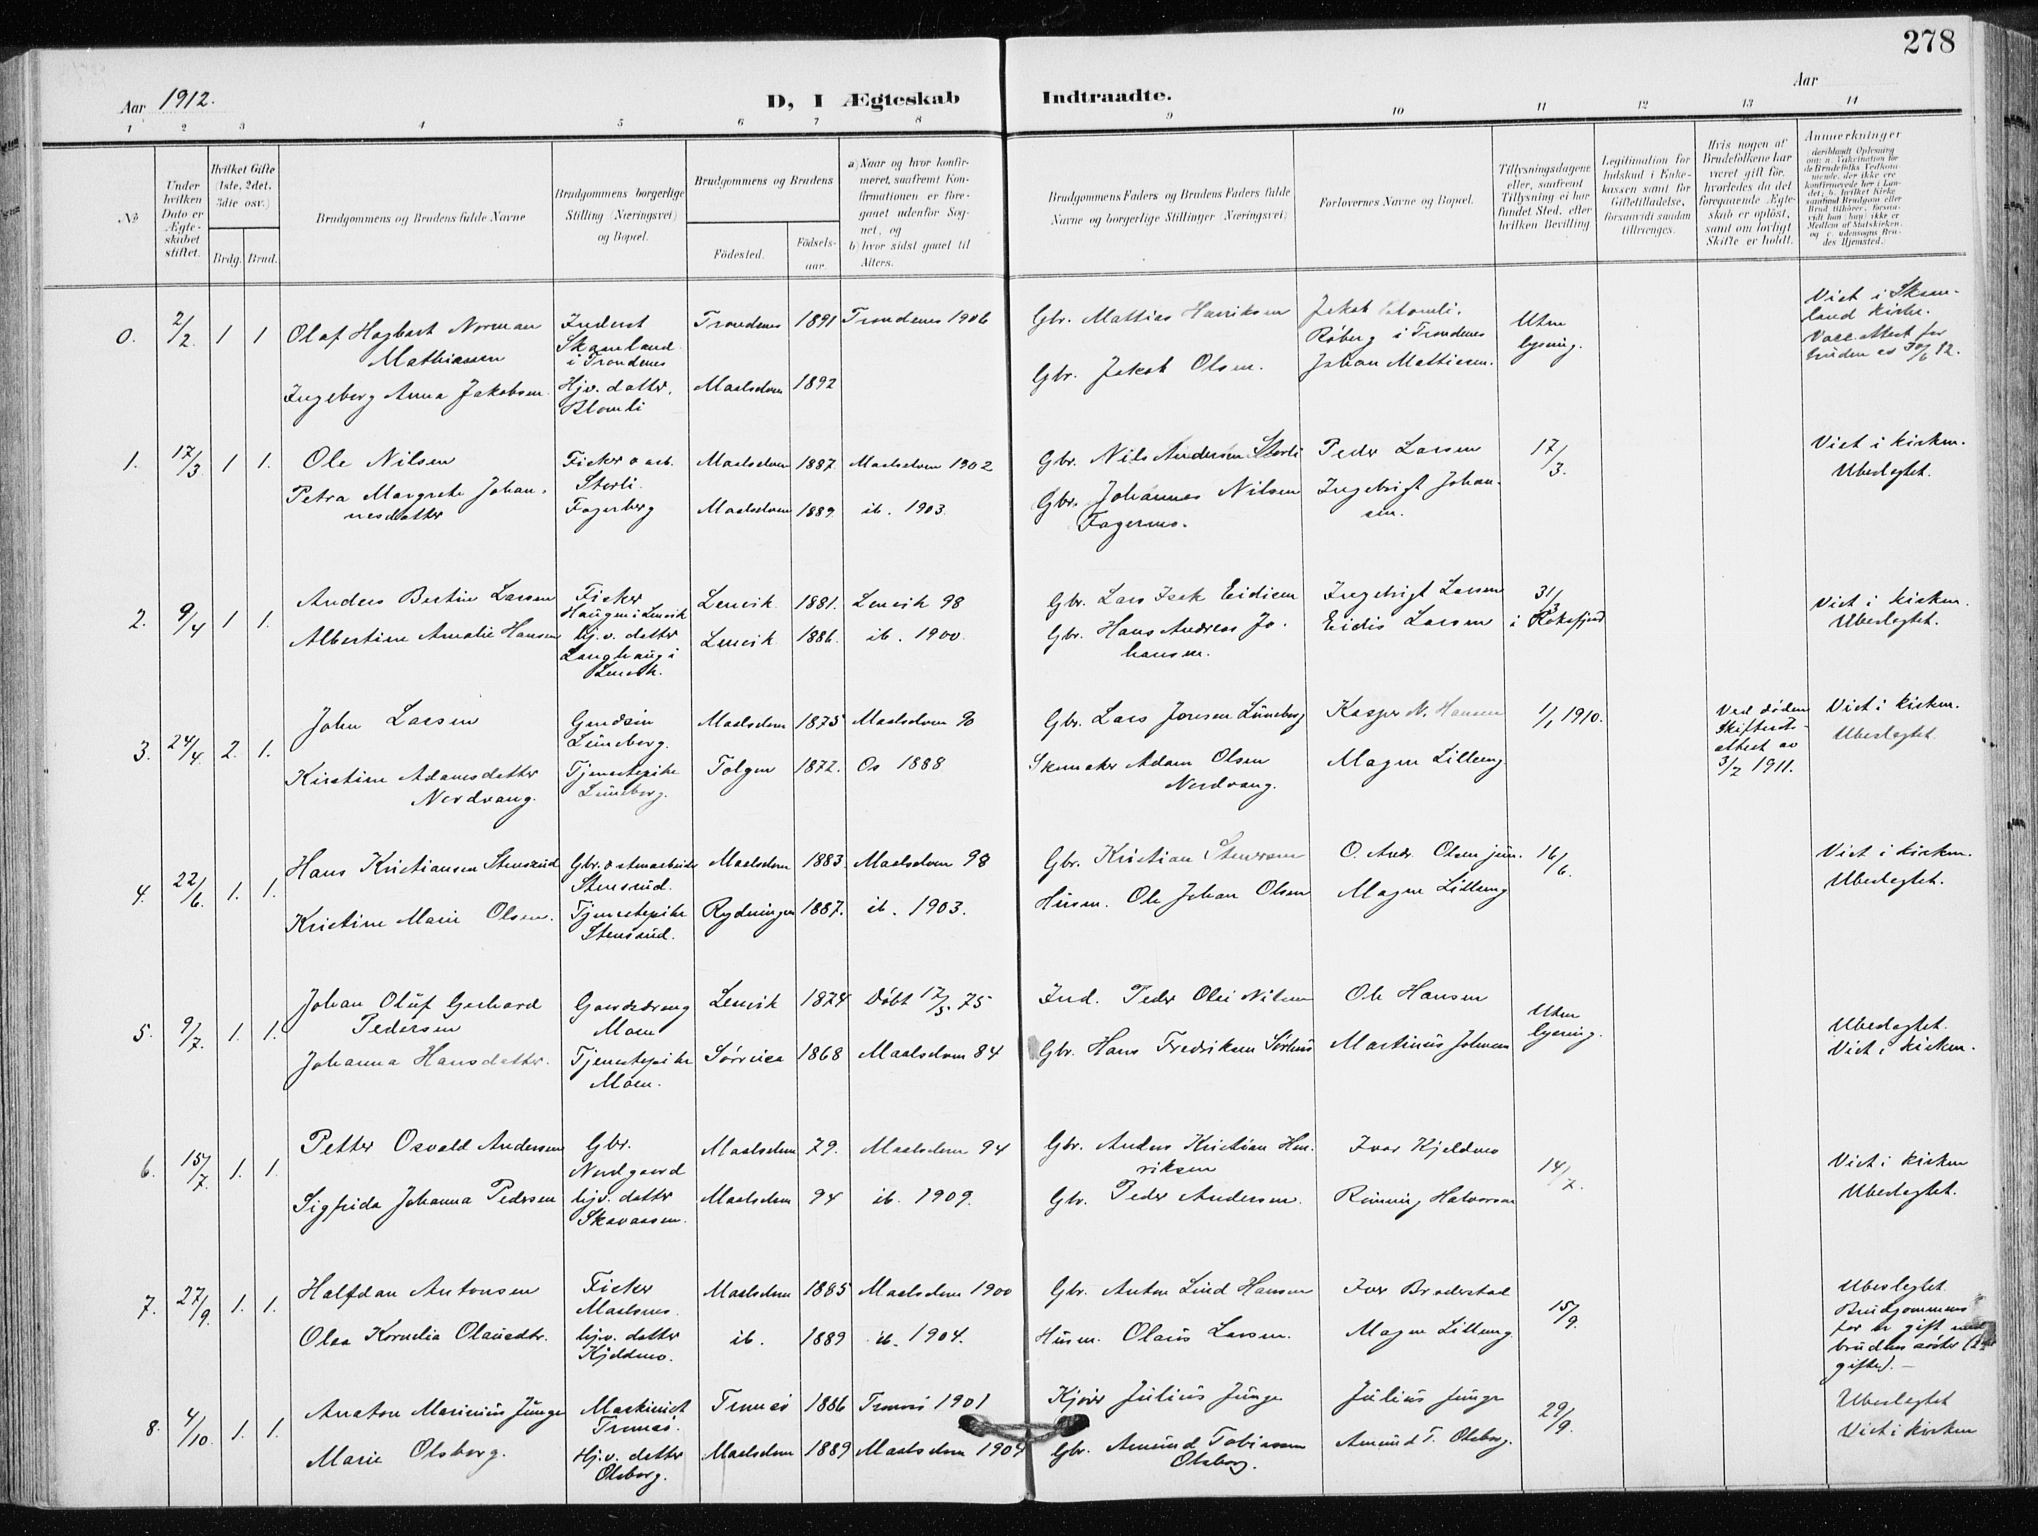 278
Aar 1912.
D, I Ægteskab Indtraadte.
Aar
1 2 3 4 5 6 7 8 9 10 11 12 13 14
No
Under hvilken Dato er Ægteskabet stiftet.
Hvilket Gifte (1ste, 2det, 3die osv.)
Brdg. Brud.
Brudgommens og Brudens fulde Navne
Brudgommens borgerlige Stilling (Næringsvei) og Bopæl.
Brudgommens og Brudens
Fødested.
Fødselsaar.
a) Naar og hvor konfirmeret, saafremt Konfirmationen er foregaaet udenfor Sognet, og
b) hvor sidst gaaet til Alters.
Brudgommens Faders og Brudens Faders fulde Navne og borgerlige Stillinger (Næringsvei)
Forlovernes Navne og Bopæl.
Tillysningsdagene eller, saafremt Tillysning ei har fundet Sted, efter hvilken Bevilling
Legitimation for Indskud i Enkekassen samt for Giftetilladelse, forsaavidt saadan tiltrænges.
Hvis nogen af Brudefolkene har været gift før, hvorledes da det foregaaende Ægteskab er opløst, samt om lovligt Skifte er holdt.
Anmerkninger
0. 2/2 1 1 Olaf Hagbart Norman Mathiassen
Inderst Skaanland i Trondenes
Trondenes 1891 Trondenes 1906
Gbr. Mattias Henriksen
Jakob Blomli, Røberg i Trondenes
Uten lysning.
Viet i Skaanland kirke.
Vacc. attest for bruden av 30/6 12.
Ingeborg Anna Jakobsen
Hjv. datter, Blomli
Maalselven 1892
Gbr. Jakob Olsen.
Johan Mattisen.
1. 17/3 1 1. Ole Nilsen
Fisker o arb. Storli.
Maalselven 1887. Maalselven 1902
Gbr. Nils Andersen Storli
Peder Larsen
17/3.
Viet i kirken.
Ubeslegtet.
Petra Margrete Johannesdatter
Fagerberg
Maalselven 1889. ib. 1903.
Gbr. Johannes Nilsen Fagernes.
Ingebrigt Johansen.
2. 9/4 1 1. Anders Bertin Larsen
Fisker Haugen i Lenvik
Lenvik 1881. Lenvik 98
Gbr. Lars Isak Eidisen
Ingebrigt Larsen
31/3 i Rossfjord
Viet i kirken.
Ubeslegtet.
Albertine Amalie Hansen
hj.v. datter Langhaug i Lenvik.
Lenvik 1886. ib. 1900.
Gbr. Hans Andreas Johansen.
Eidis Larsen
3. 24/4. 2. 1. John Larsen
Gaardsm Luneborg.
Maalselven 1875 Maalselven 90
Gbr. Lars Joresen Luneborg
Kasper N. Hansen
1/1 1910.
Ved døden Skifteretsattest av 3/2 1911.
Viet i kirken.
Ubeslegtet.
Kirstine Adamsdatter Nordvang.
Tjenestepike Luneborg.
Tolgen 1872. Os 1888
Skomaker Adam Olsen Nordvang.
Magne Lilleng
4. 22/6. 1. 1. Hans Kristiansen Stensrud
Gbr. o stenarbeider Stensrud.
Maalselven 1883. Maalselven 98
Gbr. Kristian Stensen
O. Andr. Olsen jun.
16/6.
Viet i kirken.
Ubeslegtet.
Kristine Marie Olsen.
Tjenestepike Stensrud.
Rydningen 1887. ib. 1903.
Husm. Ole Johan Olsen
Magne Lilleng
5. 9/7. 1. 1. Johan Oluf Gerhard Pedersen
Gaardsdreng Moen
Lenvik 1874. Døbt 17/5. 75
Ind. Peder Olai Nilsen
Ole Hansen
Uten lysning.
Ubeslegtet.
Viet i kirken.
Johanna Hansdatter.
Tjenestepike Moen.
Sørreisa 1868 Maalselven 84
Gbr. Hans Fredriksen Sørlies
Martinus Johnsen
6. 15/7. 1. 1. Petter Osvald Andersen
Gbr. Nordgaard
Maalselven 79. Maalselven 94
Gbr. Anders Kristian Henriksen
Ivar Kjeldmo
14/7.
Viet i kirken
Ubeslegtet.
Sigfrida Johanna Pedersen
hjv. datter Skavaasen.
Maalselven 94 ib. 1909.
Gbr. Peder Andersen.
Rønning Halvorsen
7. 27/9. 1. 1. Halfdan Antonsen
Fisker Maalsnes.
Maalselven 1885 Maalselven 1900
Gbr. Anton Lind Hansen
Iver Brodersdal
15/9.
Ubeslegtet.
Brudgommens far er gift med brudens søster (2det gifte). —
Olea Kornelia Olausdtr.
hjv. datter Kjeldmo.
ib. 1889 ib. 1904.
Husm. Olaus Larsen.
Magne Lilleng
8. 4/10. 1. 1. Anaton Marinius Junge
Maskinist Tromsø.
Tromsø 1886 Tromsø 1901
Kjører Julius Junge
Julius Junge
29/9.
Ubeslegtet
Viet i kirken
Marie Olsborg.
Hj.v. datter Olsborg.
Maalselven 1889 Maalselven 1904
Gbr. Amund Tobiassen Olsborg.
Amund T. Olsborg.